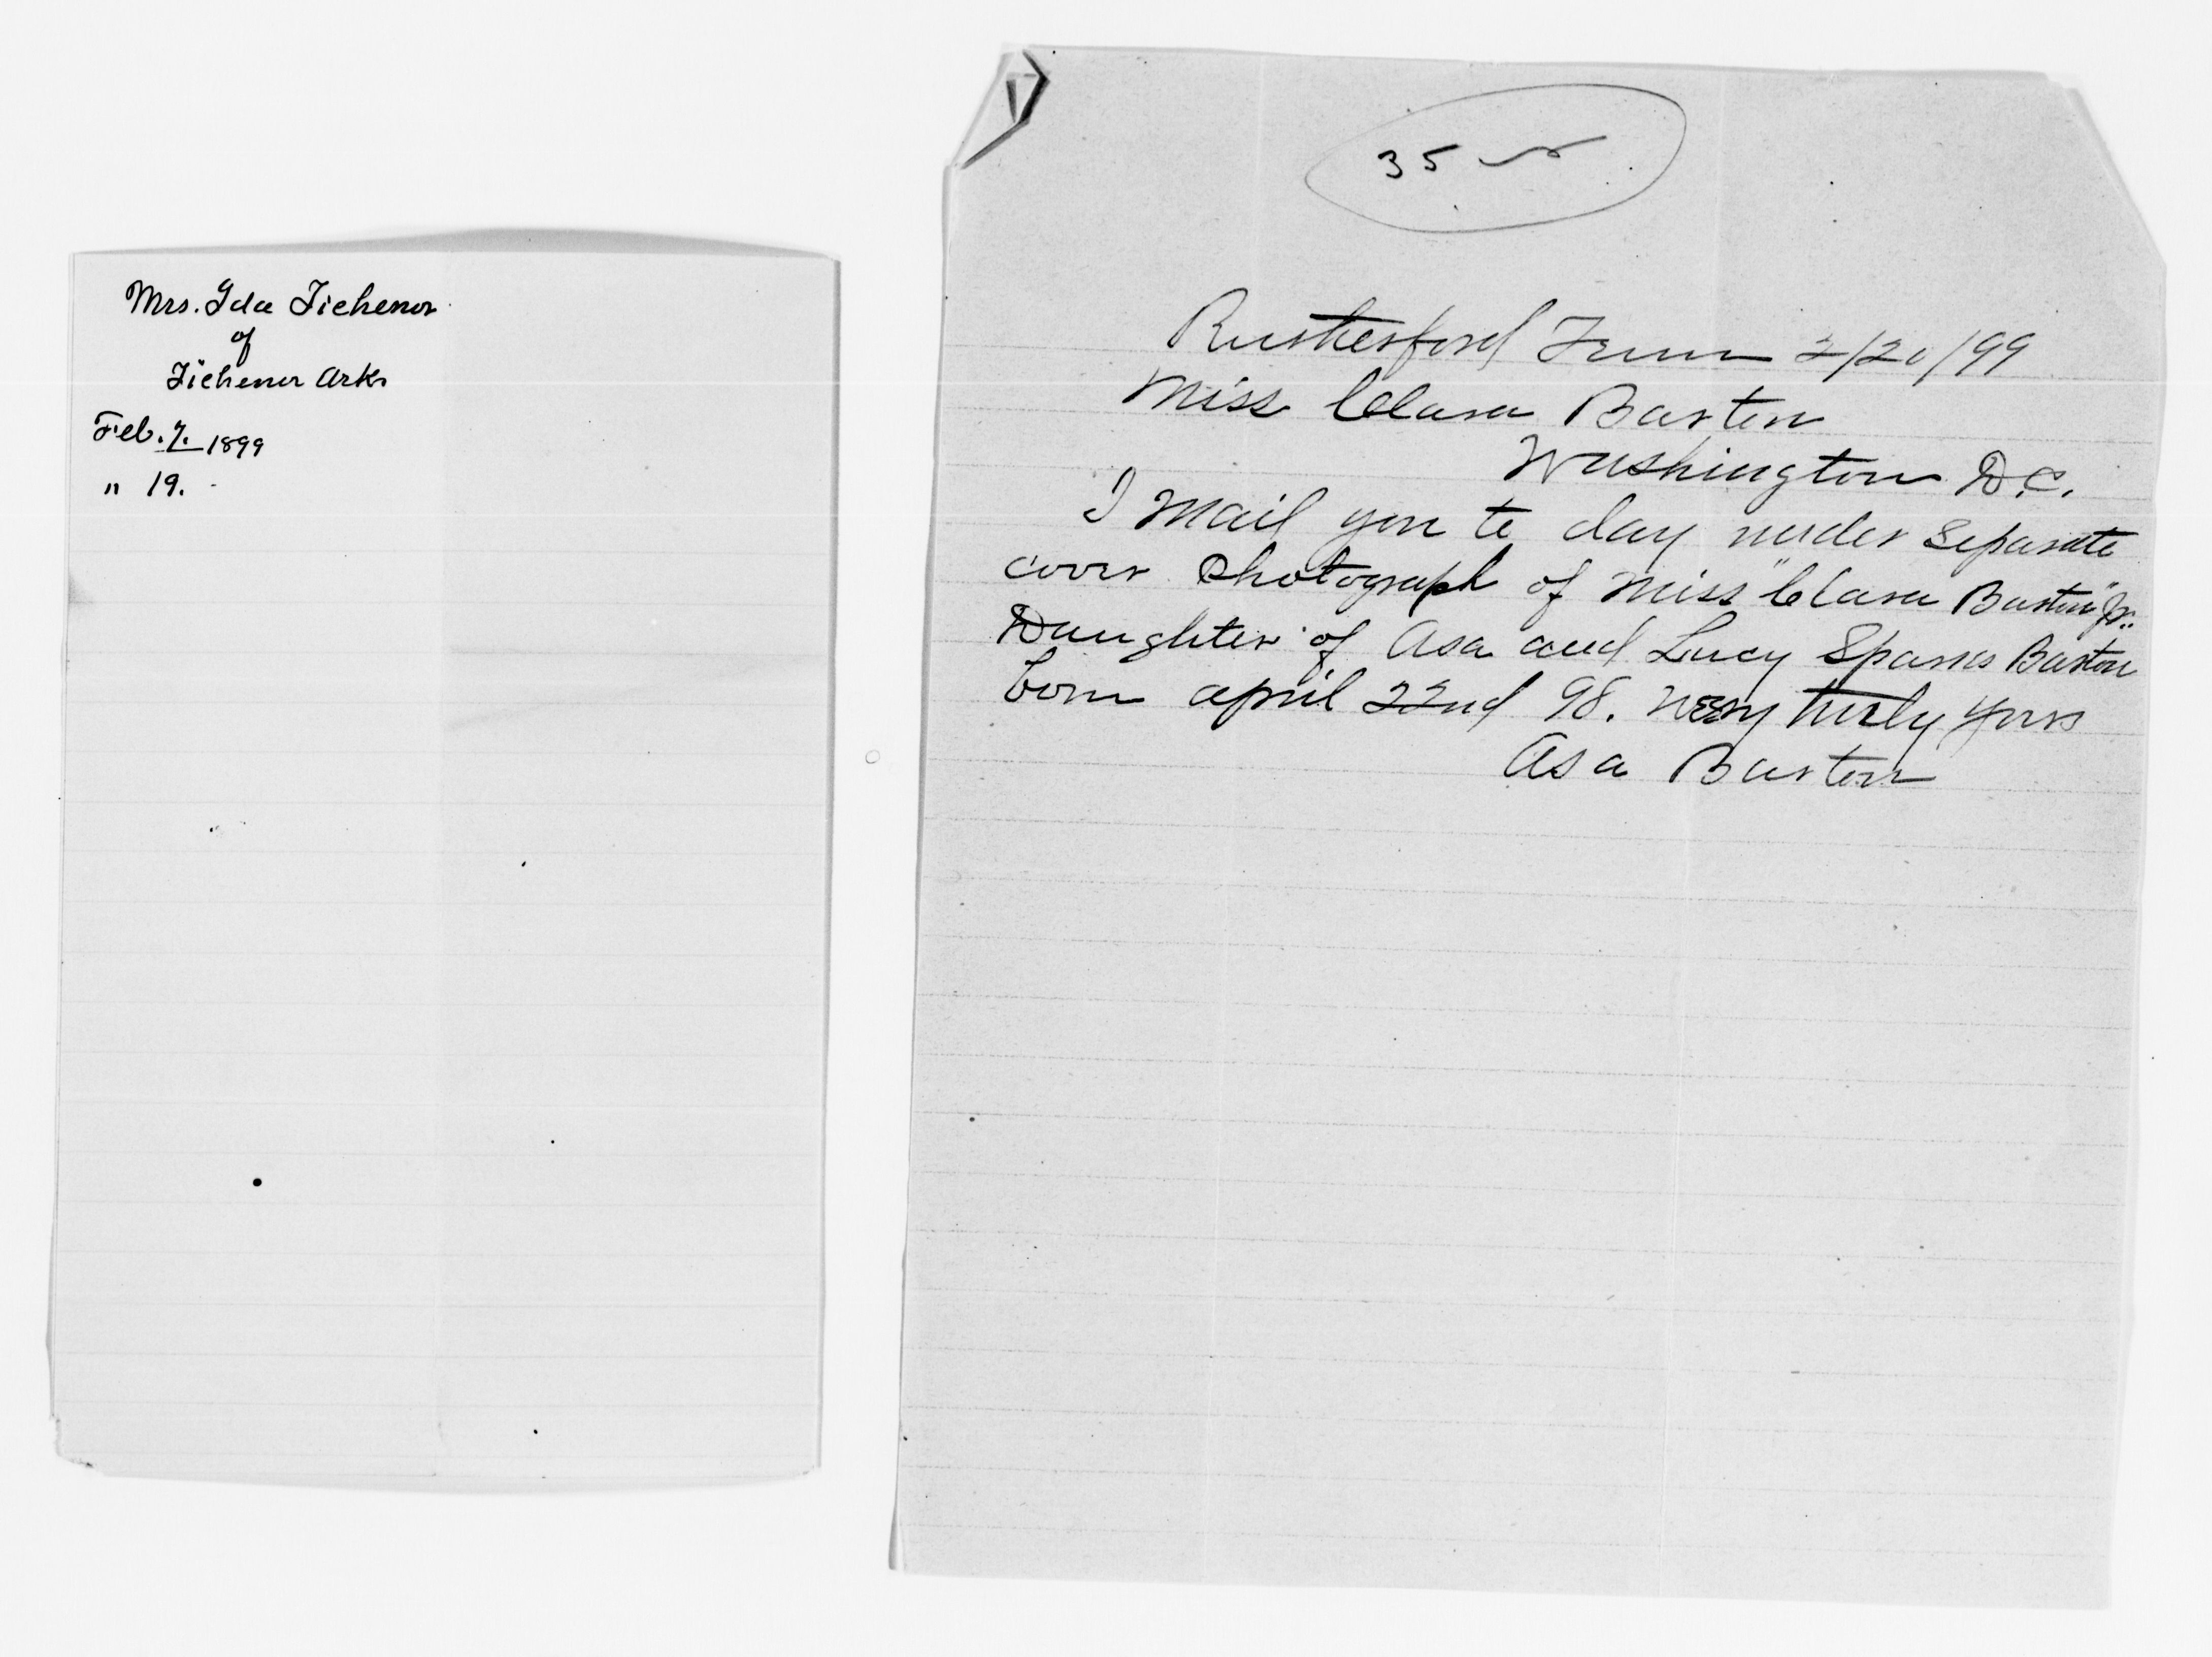 Mrs. Ida Tichenor
of
Tichenor Arks
Feb. 7. 1899
" 19.
35
Rutherford Tenn 2/20/99
Miss Clara Barton
Washington D.C.
I mail you to day under separate
cover Photograph of Miss "Clara Barton" Jr.
Daughter of Asa and Lucy Barton
born april 22nd 98. Very truly yours
Asa Barton